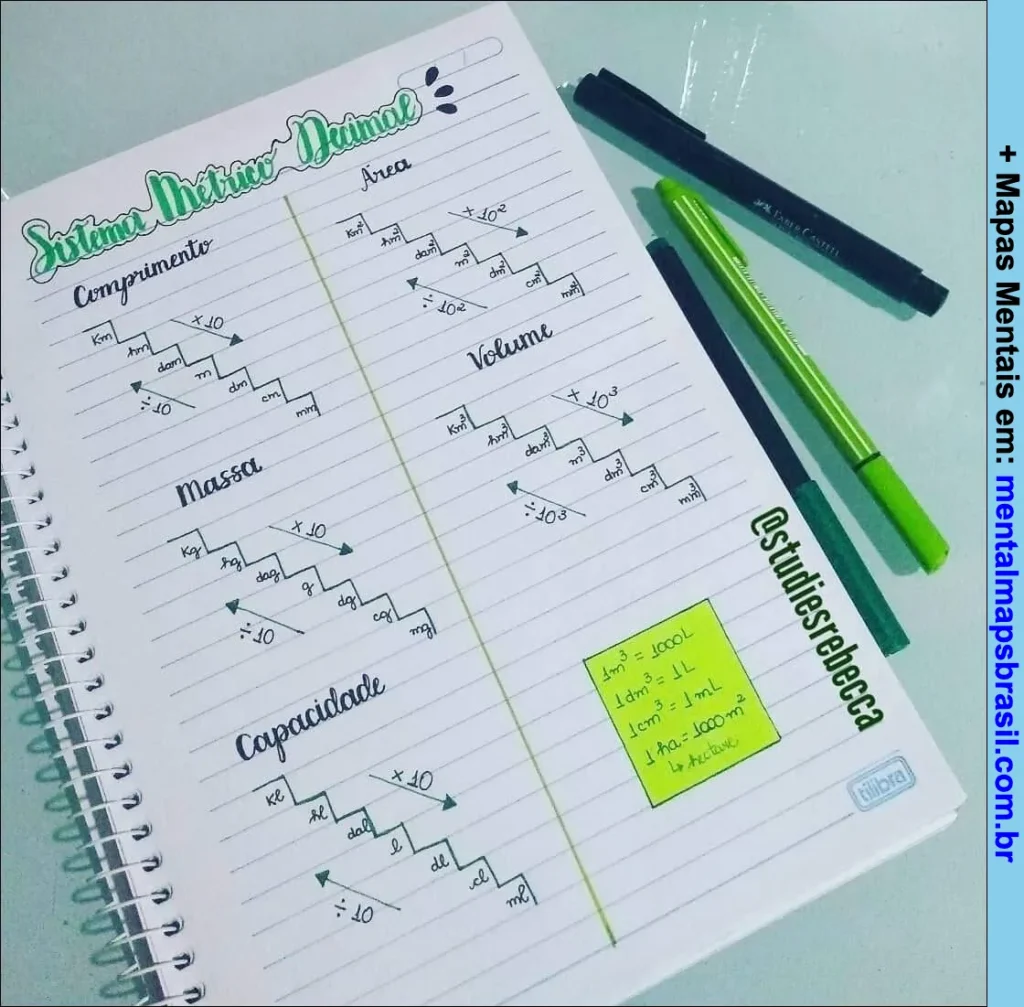 Sistema Métrico Decimal
Comprimento
Km
hm
dam
m
dm
cm
mm
×10
÷10
Massa
Kg
hg
dag
g
dg
cg
mg
×10
÷10
Capacidade
Kl
hl
dal
l
dl
cl
ml
×10
÷10
Área
Km²
hm²
dam²
m²
dm²
cm²
mm²
×10²
÷10²
Volume
Km³
hm³
dam³
m³
dm³
cm³
mm³
×10³
÷10³
1m³ = 1000L
1dm³ = 1L
1cm³ = 1mL
1ha = 1000m²
↳ hectare
tilibra
@studiesrebecca
FABER CASTELL
+ Mapas Mentais em: mentalmapsbrasil.com.br